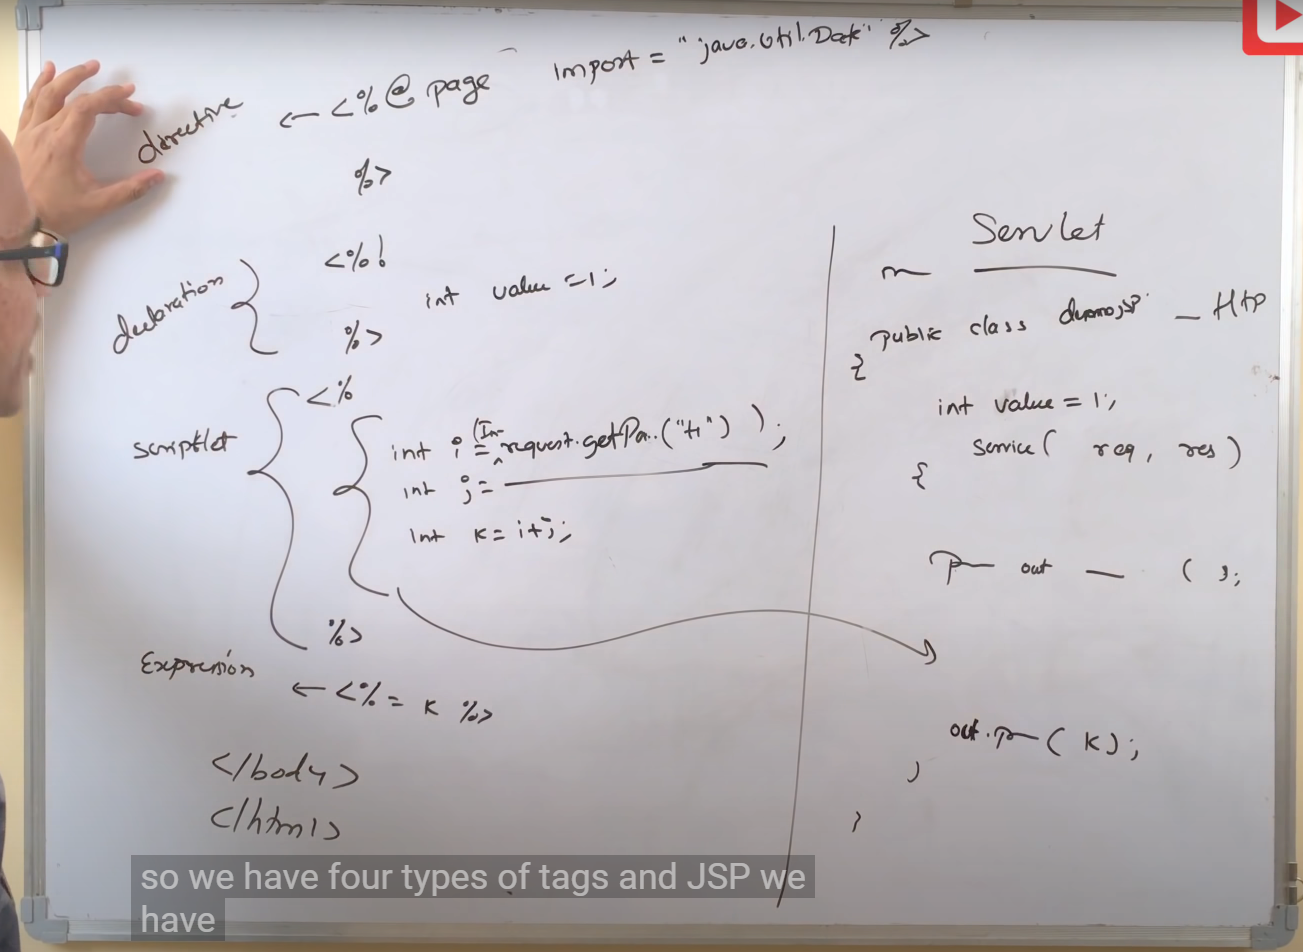 directive ← <%@ page import = "java.util.Date" %>
%>
declaration
<%!
int value =1;
%>
scriptlet
<%
int i = (In request.getPa..("t1") );
int j =
int k = i+j;
%>
Expression
← <%= k %>
</body>
</html>
Servlet
public class demojsp _ Http
{
int value = 1;
service( req, res )
{
out ( );
out.p ( k);
}
}
so we have four types of tags and JSP we
have